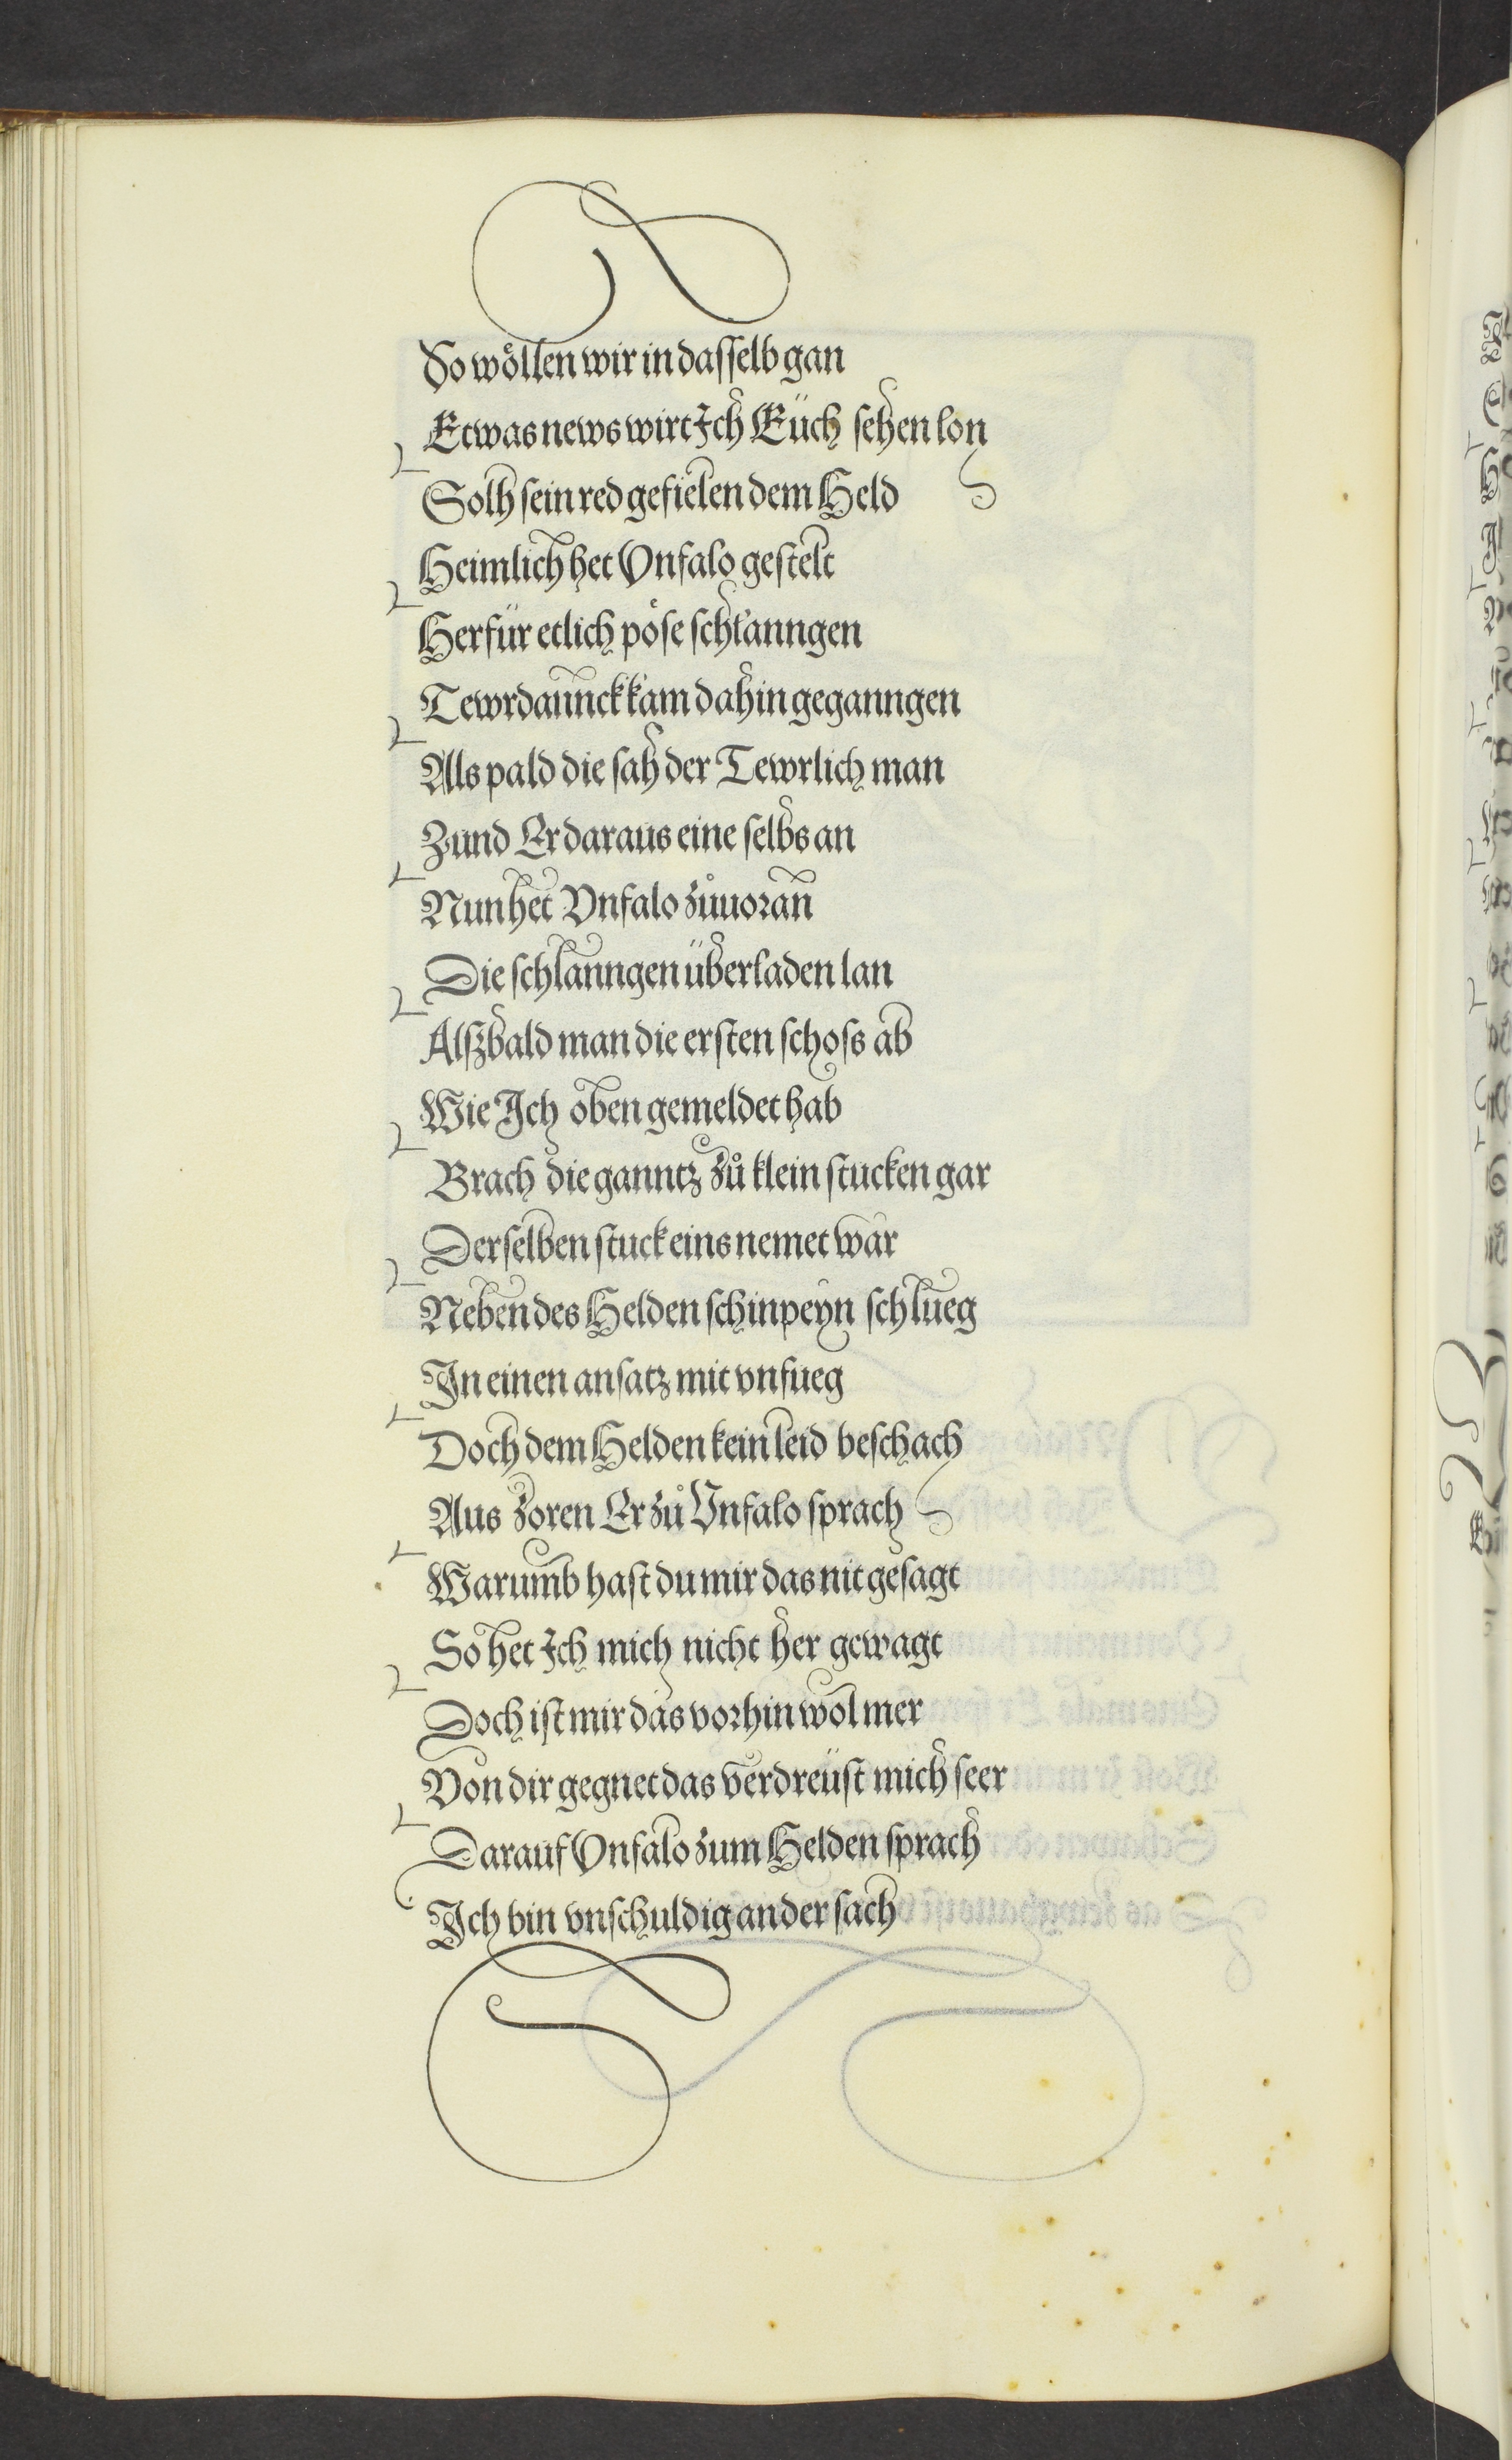 So wöllen wir in dasselb gan
Etwas news wirt Ich Eüch sehen lon
Solh sein red gefielen dem Held
Heimlich het Vnfalo gestelt
Herfür etlich pöse schlanngen
Tewrdannck kam dahin geganngen
Als pald die sah der Tewrlich man
Zund Er daraus eine selbs an
Nun het Vnfalo zůuoran
Die schlanngen überladen lan
Alßbald man die ersten schoss ab
Wie Ich oben gemeldet hab
Brach die ganntz zů klein stucken gar
Derselben stuck eins nemet war
Neben des Helden schinpeyn schlueg
In einen ansatz mit vnfueg
Doch dem Helden kein leid beschach
Aus zoren Er zů Vnfalo sprach
Warumb hast du mir das nit gesagt
So het Ich mich nicht her gewagt
Doch ist mir das vorhin wol mer
Von dir gegnet das verdreüst mich seer
Darauf Vnfalo zum Helden sprach
Ich bin vnschuldig an der sach